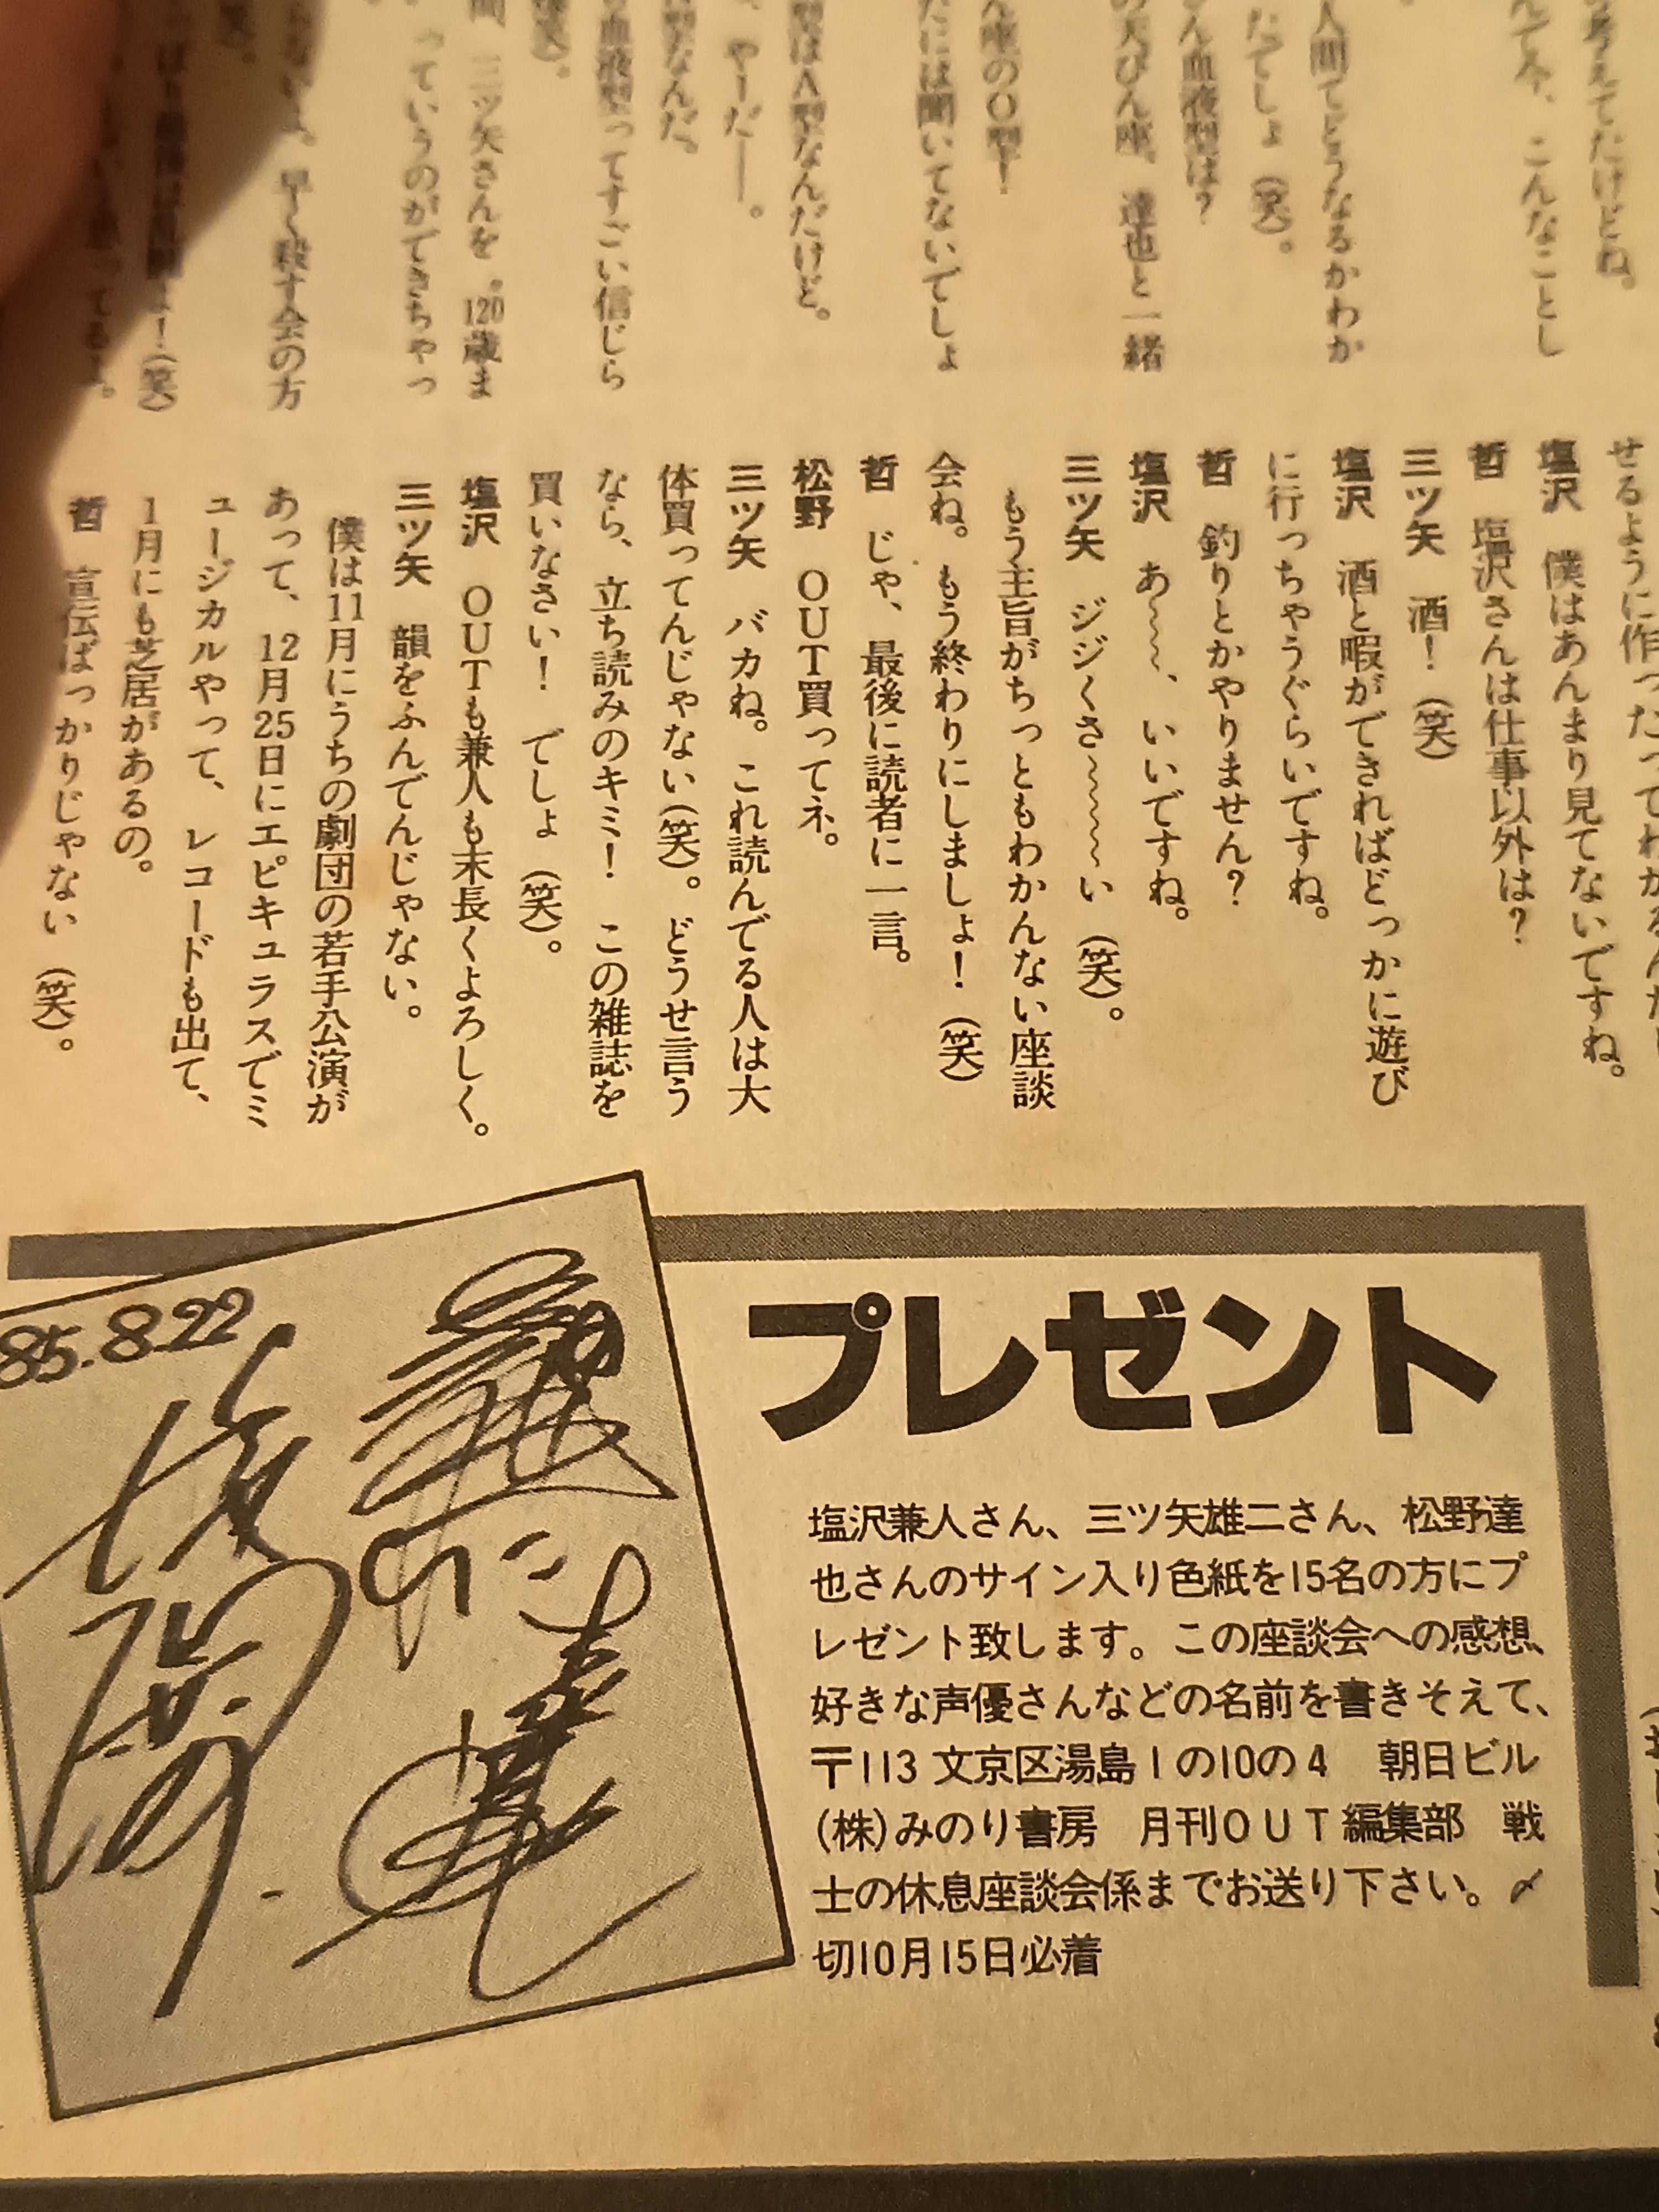 考えてたけどね。
んて今、こんなことし
人間てどうなるかわか
たでしょ(笑)。
ん血液型は?
の天びん座。達也と一緒
ん座のO型!
たには聞いてないでしょ
型はA型なんだけど。
、やーだ——。
型なんだ。
血液型ってすごい信じら
爆笑)。
間、三ツ矢さんを〝120歳ま
っていうのができちゃっ
早く殺す会の方
よ!(笑)
せるように作ったってわかるんだ
塩沢 僕はあんまり見てないですね。
哲 塩沢さんは仕事以外は?
三ツ矢 酒!(笑)
塩沢 酒と暇ができればどっかに遊び
に行っちゃうぐらいですね。
哲 釣りとかやりません?
塩沢 あ〜〜、いいですね。
三ツ矢 ジジくさ〜〜〜〜い(笑)。
もう主旨がちっともわかんない座談
会ね。もう終わりにしましょ!(笑)
哲 じゃ、最後に読者に一言。
松野 OUT買ってネ。
三ツ矢 バカね。これ読んでる人は大
体買ってんじゃない(笑)。どうせ言う
なら、立ち読みのキミ! この雑誌を
買いなさい! でしょ(笑)。
塩沢 OUTも兼人も末長くよろしく。
三ツ矢 韻をふんでんじゃない。
僕は11月にうちの劇団の若手公演が
あって、12月25日にエピキュラスでミ
ュージカルやって、レコードも出て、
1月にも芝居があるの。
哲 宣伝ばっかりじゃない(笑)。
85.8.22
プレゼント
塩沢兼人さん、三ツ矢雄二さん、松野達
也さんのサイン入り色紙を15名の方にプ
レゼント致します。この座談会への感想、
好きな声優さんなどの名前を書きそえて、
〒113 文京区湯島1の10の4 朝日ビル
(株)みのり書房 月刊OUT編集部 戦
士の休息座談会係までお送り下さい。〆
切10月15日必着